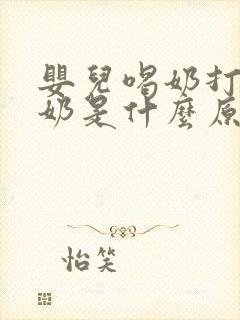 嬰兒喝奶打
奶是什麼原
怡笑